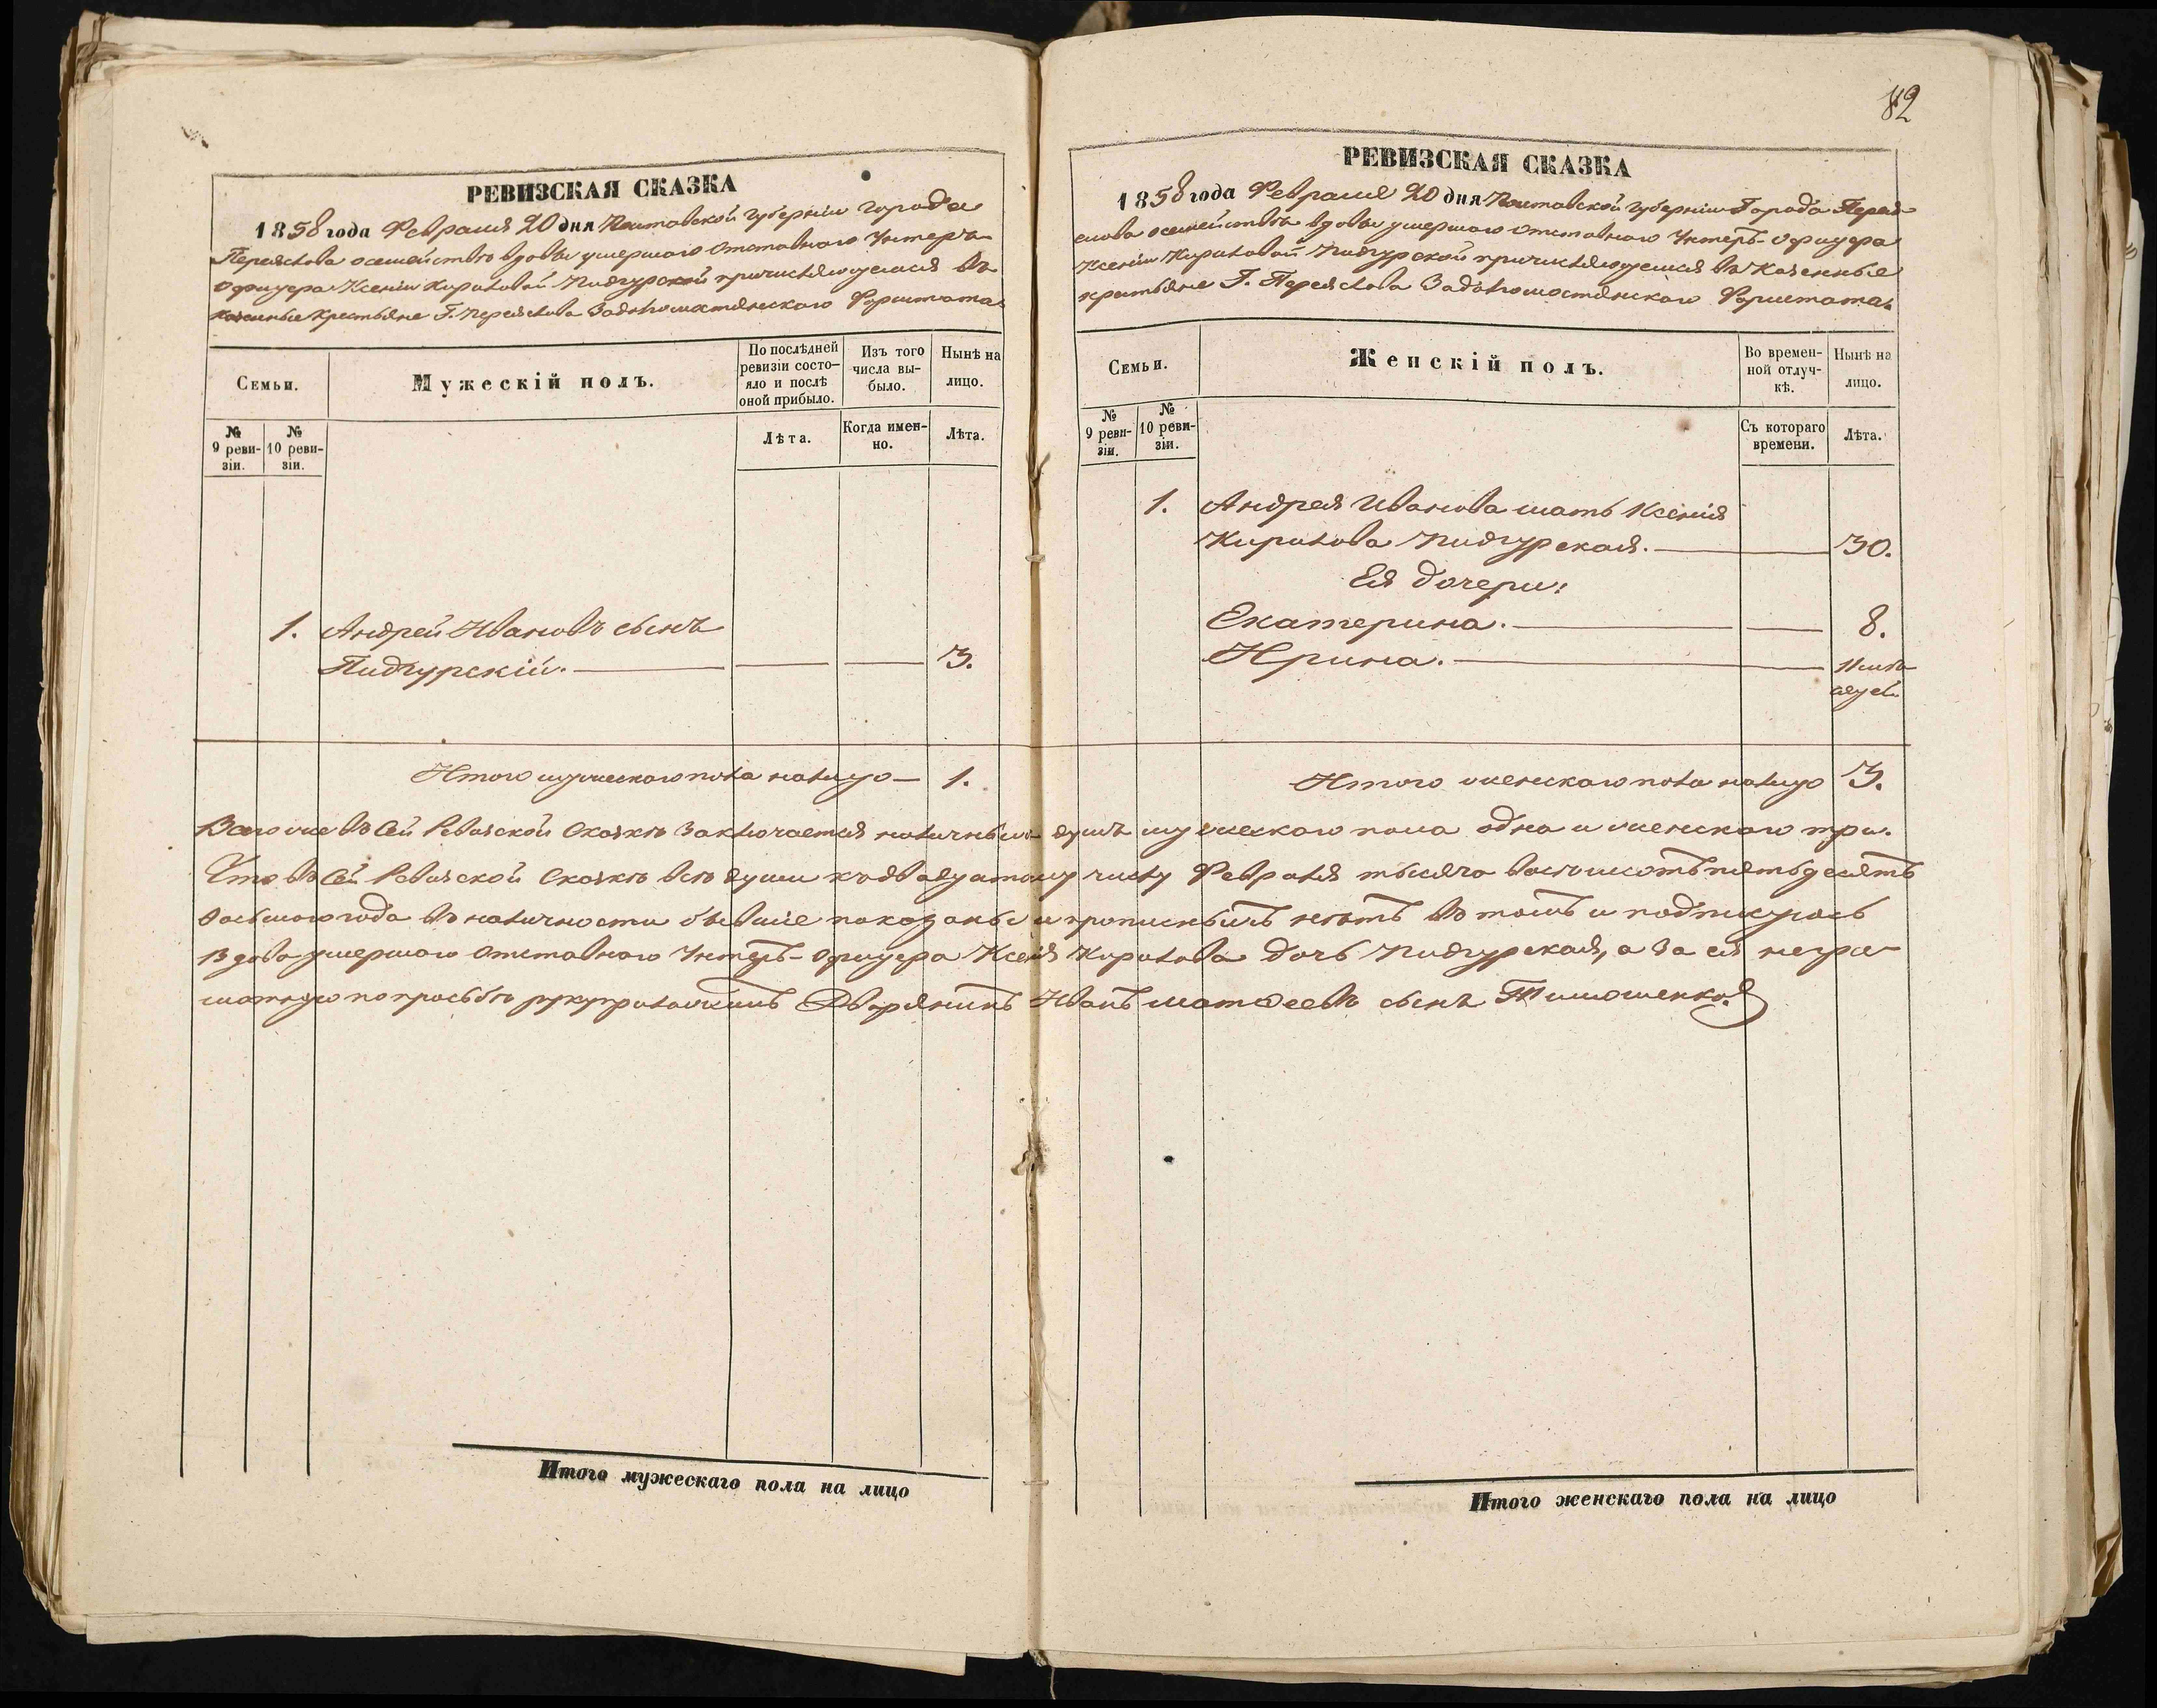 82
РЕВИЗСКАЯ СКАЗКА
1858 года Февраля 20 дня Полтавской губерніи города
Переяслова о семействѣ вдовы умершаго отставнаго Унтеръ
Офицера Ксеніи Кириловой Пидгурской причисляющемся въ
казенные крестьяне Г. Переяслова Задьгомостянскаго Форштата.
Семьи.
Мужескій полъ.
По послѣдней ревизіи состояло и послѣ оной прибыло.
Изъ того числа выбыло.
Нынѣ на лицо.
№ 9 ревизіи.
№ 10 ревизіи.
Лѣта.
Когда именно.
Лѣта.
1. Андрей Ивановъ сынъ
Пидгурскій. 3.
Итого мужескаго пола налицо — 1.
РЕВИЗСКАЯ СКАЗКА
1858 года Февраля 20 дня Полтавской губерніи Города Перея-
слова о семействѣ вдовы умершаго отставнаго Унтеръ-Офицера
Ксеніи Кириловой Пидгурской причисляющемся въ казенные
крестьяне Г. Переяслова Задьгомостянскаго Форштата.
Семьи.
Женскій полъ.
Во временной отлучкѣ.
Нынѣ на лицо.
№ 9 ревизіи.
№ 10 ревизіи.
Съ котораго времени.
Лѣта.
1. Андрея Иванова мать Ксенія
Кирилова Пидгурская. 30.
Ея дочери:
Екатерина. 8.
Ирина. 11
Итого женскаго пола налицо 3.
Всего же въ сей Ревизской Сказкѣ заключается наличныхъ душъ мужескаго пола одна и женскаго три.
Что въ сей Ревизской Сказкѣ всѣ души къ двадцатому числу Февраля тысяча восемьсотъ пятьдесятъ
восьмаго года въ наличности бывшіе показаны и прописныхъ нѣтъ въ томъ и подпишусь
Вдова умершаго отставнаго Унтеръ-Офицера Ксенія Кирилова дочь Пидгурская, а за ея негра-
матную по просьбѣ Дворянинъ Иванъ Матѳеевъ сынъ Тимошенко.
Итого мужескаго пола на лицо
Итого женскаго пола на лицо